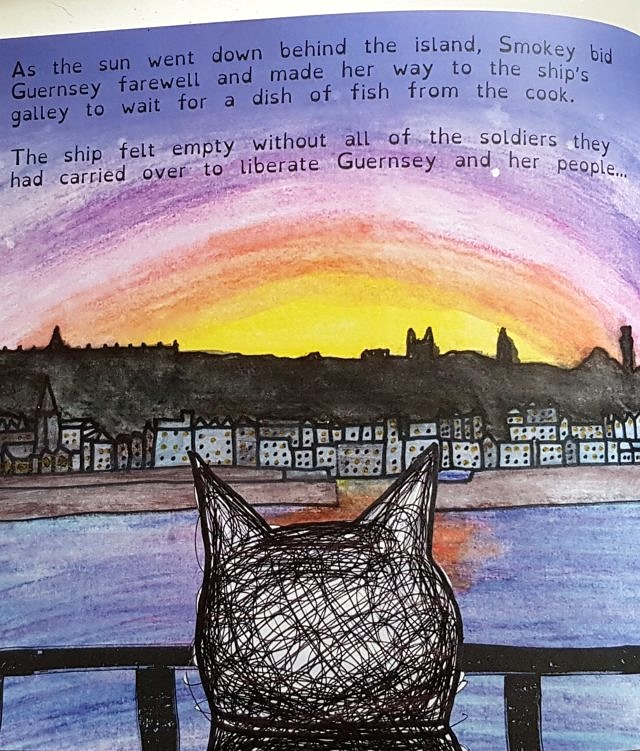 As the sun went down behind the island, Smokey bid
Guernsey farewell and made her way to the ship's
galley to wait for a dish of fish from the cook.
The ship felt empty without all of the soldiers they
had carried over to liberate Guernsey and her people...